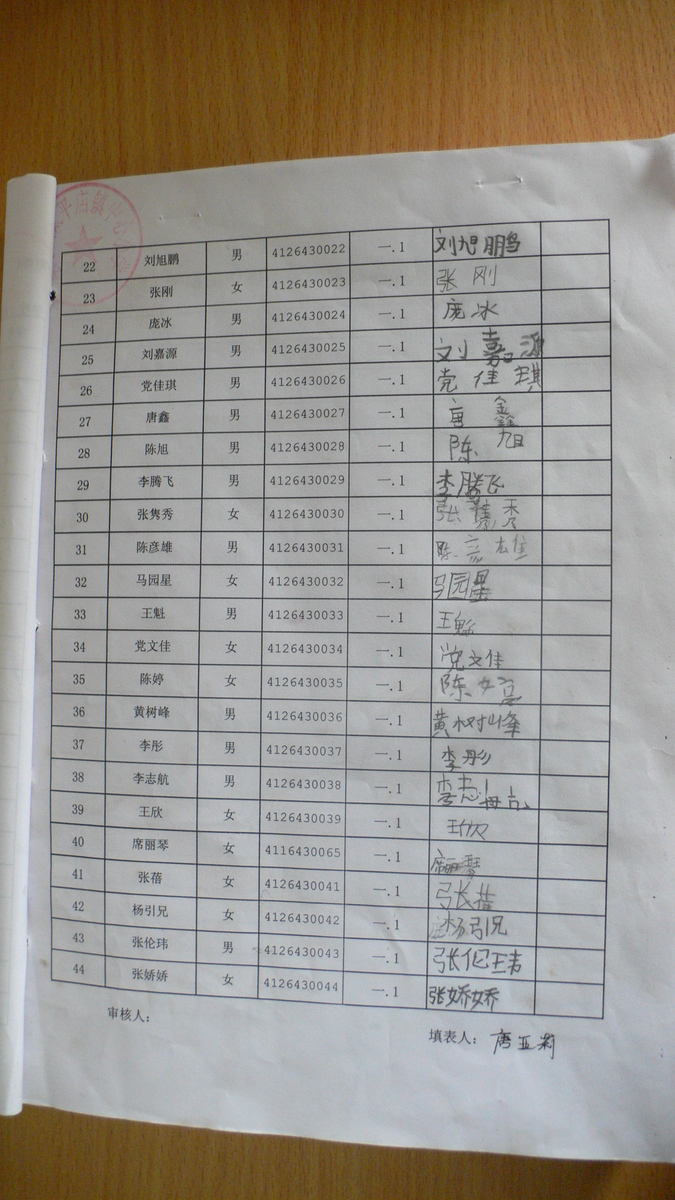 22 刘旭鹏 男 4126430022 一.1 刘旭鹏
23 张刚 女 4126430023 一.1 张刚
24 庞冰 男 4126430024 一.1 庞冰
25 刘嘉源 男 4126430025 一.1 刘嘉源
26 党佳琪 男 4126430026 一.1 党佳琪
27 唐鑫 男 4126430027 一.1 唐鑫
28 陈旭 男 4126430028 一.1 陈旭
29 李腾飞 男 4126430029 一.1 李腾飞
30 张隽秀 女 4126430030 一.1 张秀
31 陈彦雄 男 4126430031 一.1 陈彦雄
32 马园星 女 4126430032 一.1 马园星
33 王魁 男 4126430033 一.1 王魁
34 党文佳 女 4126430034 一.1 党文佳
35 陈婷 女 4126430035 一.1 陈婷
36 黄树峰 男 4126430036 一.1 黄树峰
37 李彤 男 4126430037 一.1 李彤
38 李志航 男 4126430038 一.1 李志
39 王欣 女 4126430039 一.1 王欣
40 席丽琴 女 4116430065 一.1 席丽琴
41 张蓓 女 4126430041 一.1 张蓓
42 杨引兄 女 4126430042 一.1 杨引兄
43 张伦玮 男 4126430043 一.1 张伦玮
44 张娇娇 女 4126430044 一.1 张娇娇
审核人：
填表人：唐亚莉